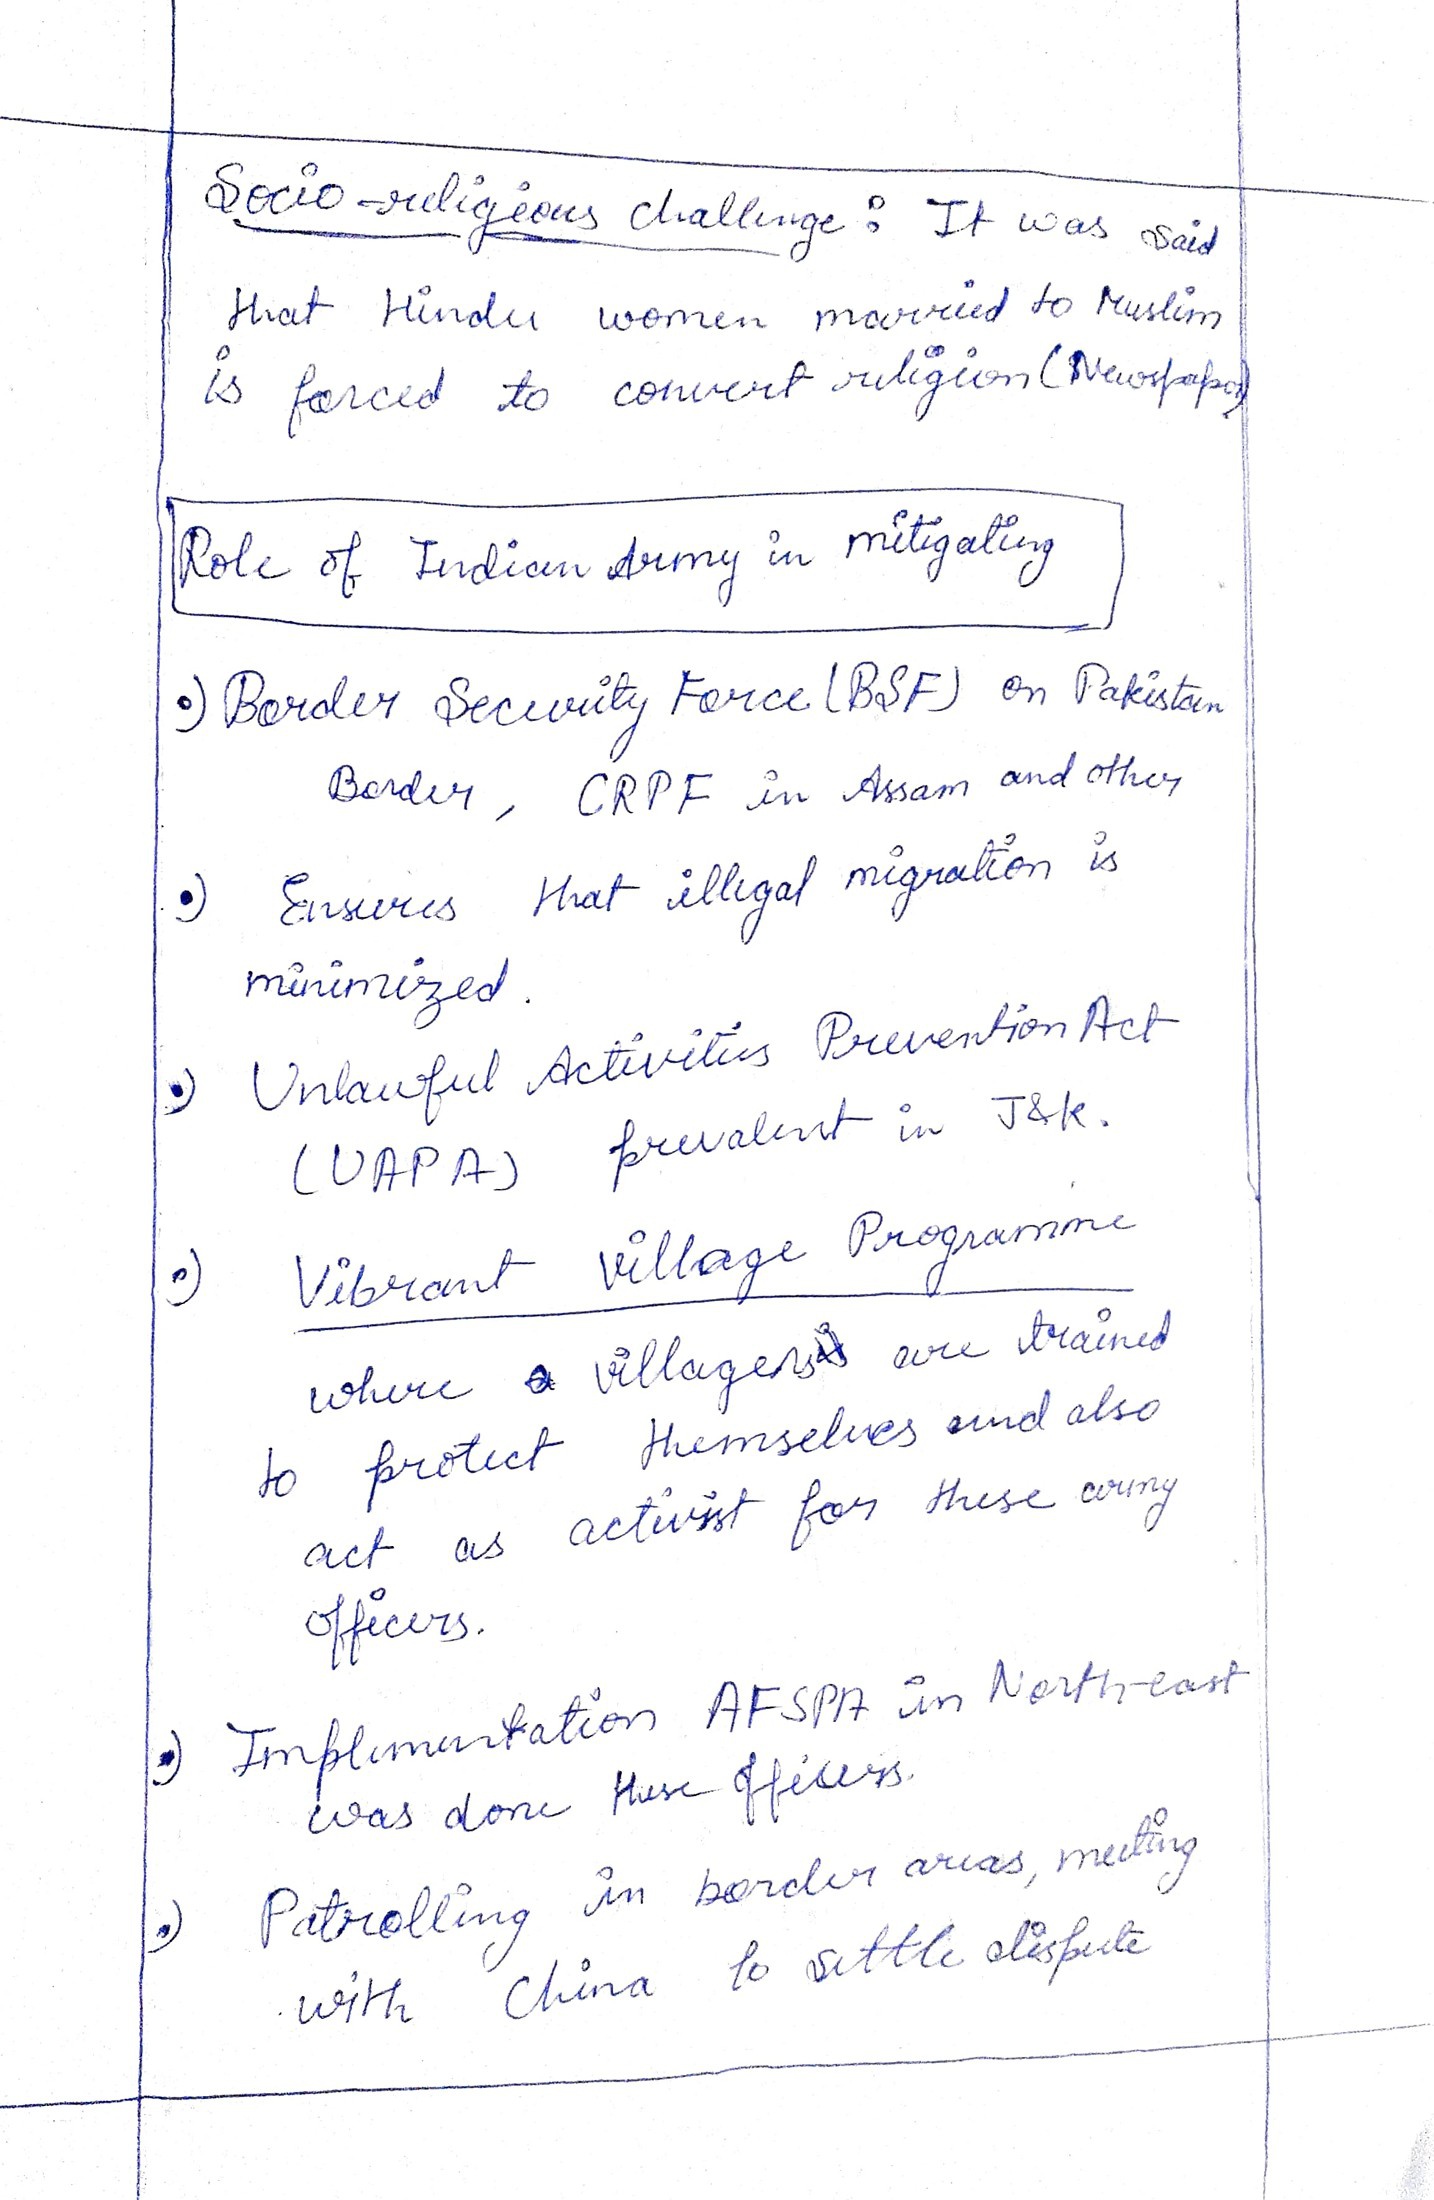 Socio-religious challenge: It was said
that Hindu women married to Muslim
is forced to convert religion (Newspaper)
Role of Indian Army in mitigating
•) Border Security Force (BSF) on Pakistan
Border, CRPF in Assam and other
•) Ensures that illegal migration is
minimized.
•) Unlawful Activities Prevention Act
(UAPA) prevalent in J&K.
•) Vibrant Village Programme
where villagers are trained
to protect themselves and also
act as activist for these army
officers.
•) Implementation AFSPA in North-east
was done these officers.
•) Patrolling in border areas, meeting
with China to settle dispute